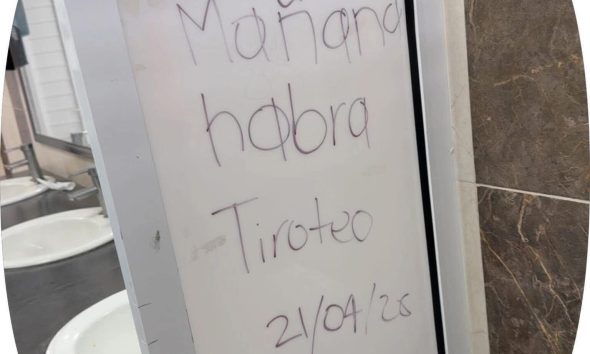 Mañana
habra
Tiroteo
21/04/26